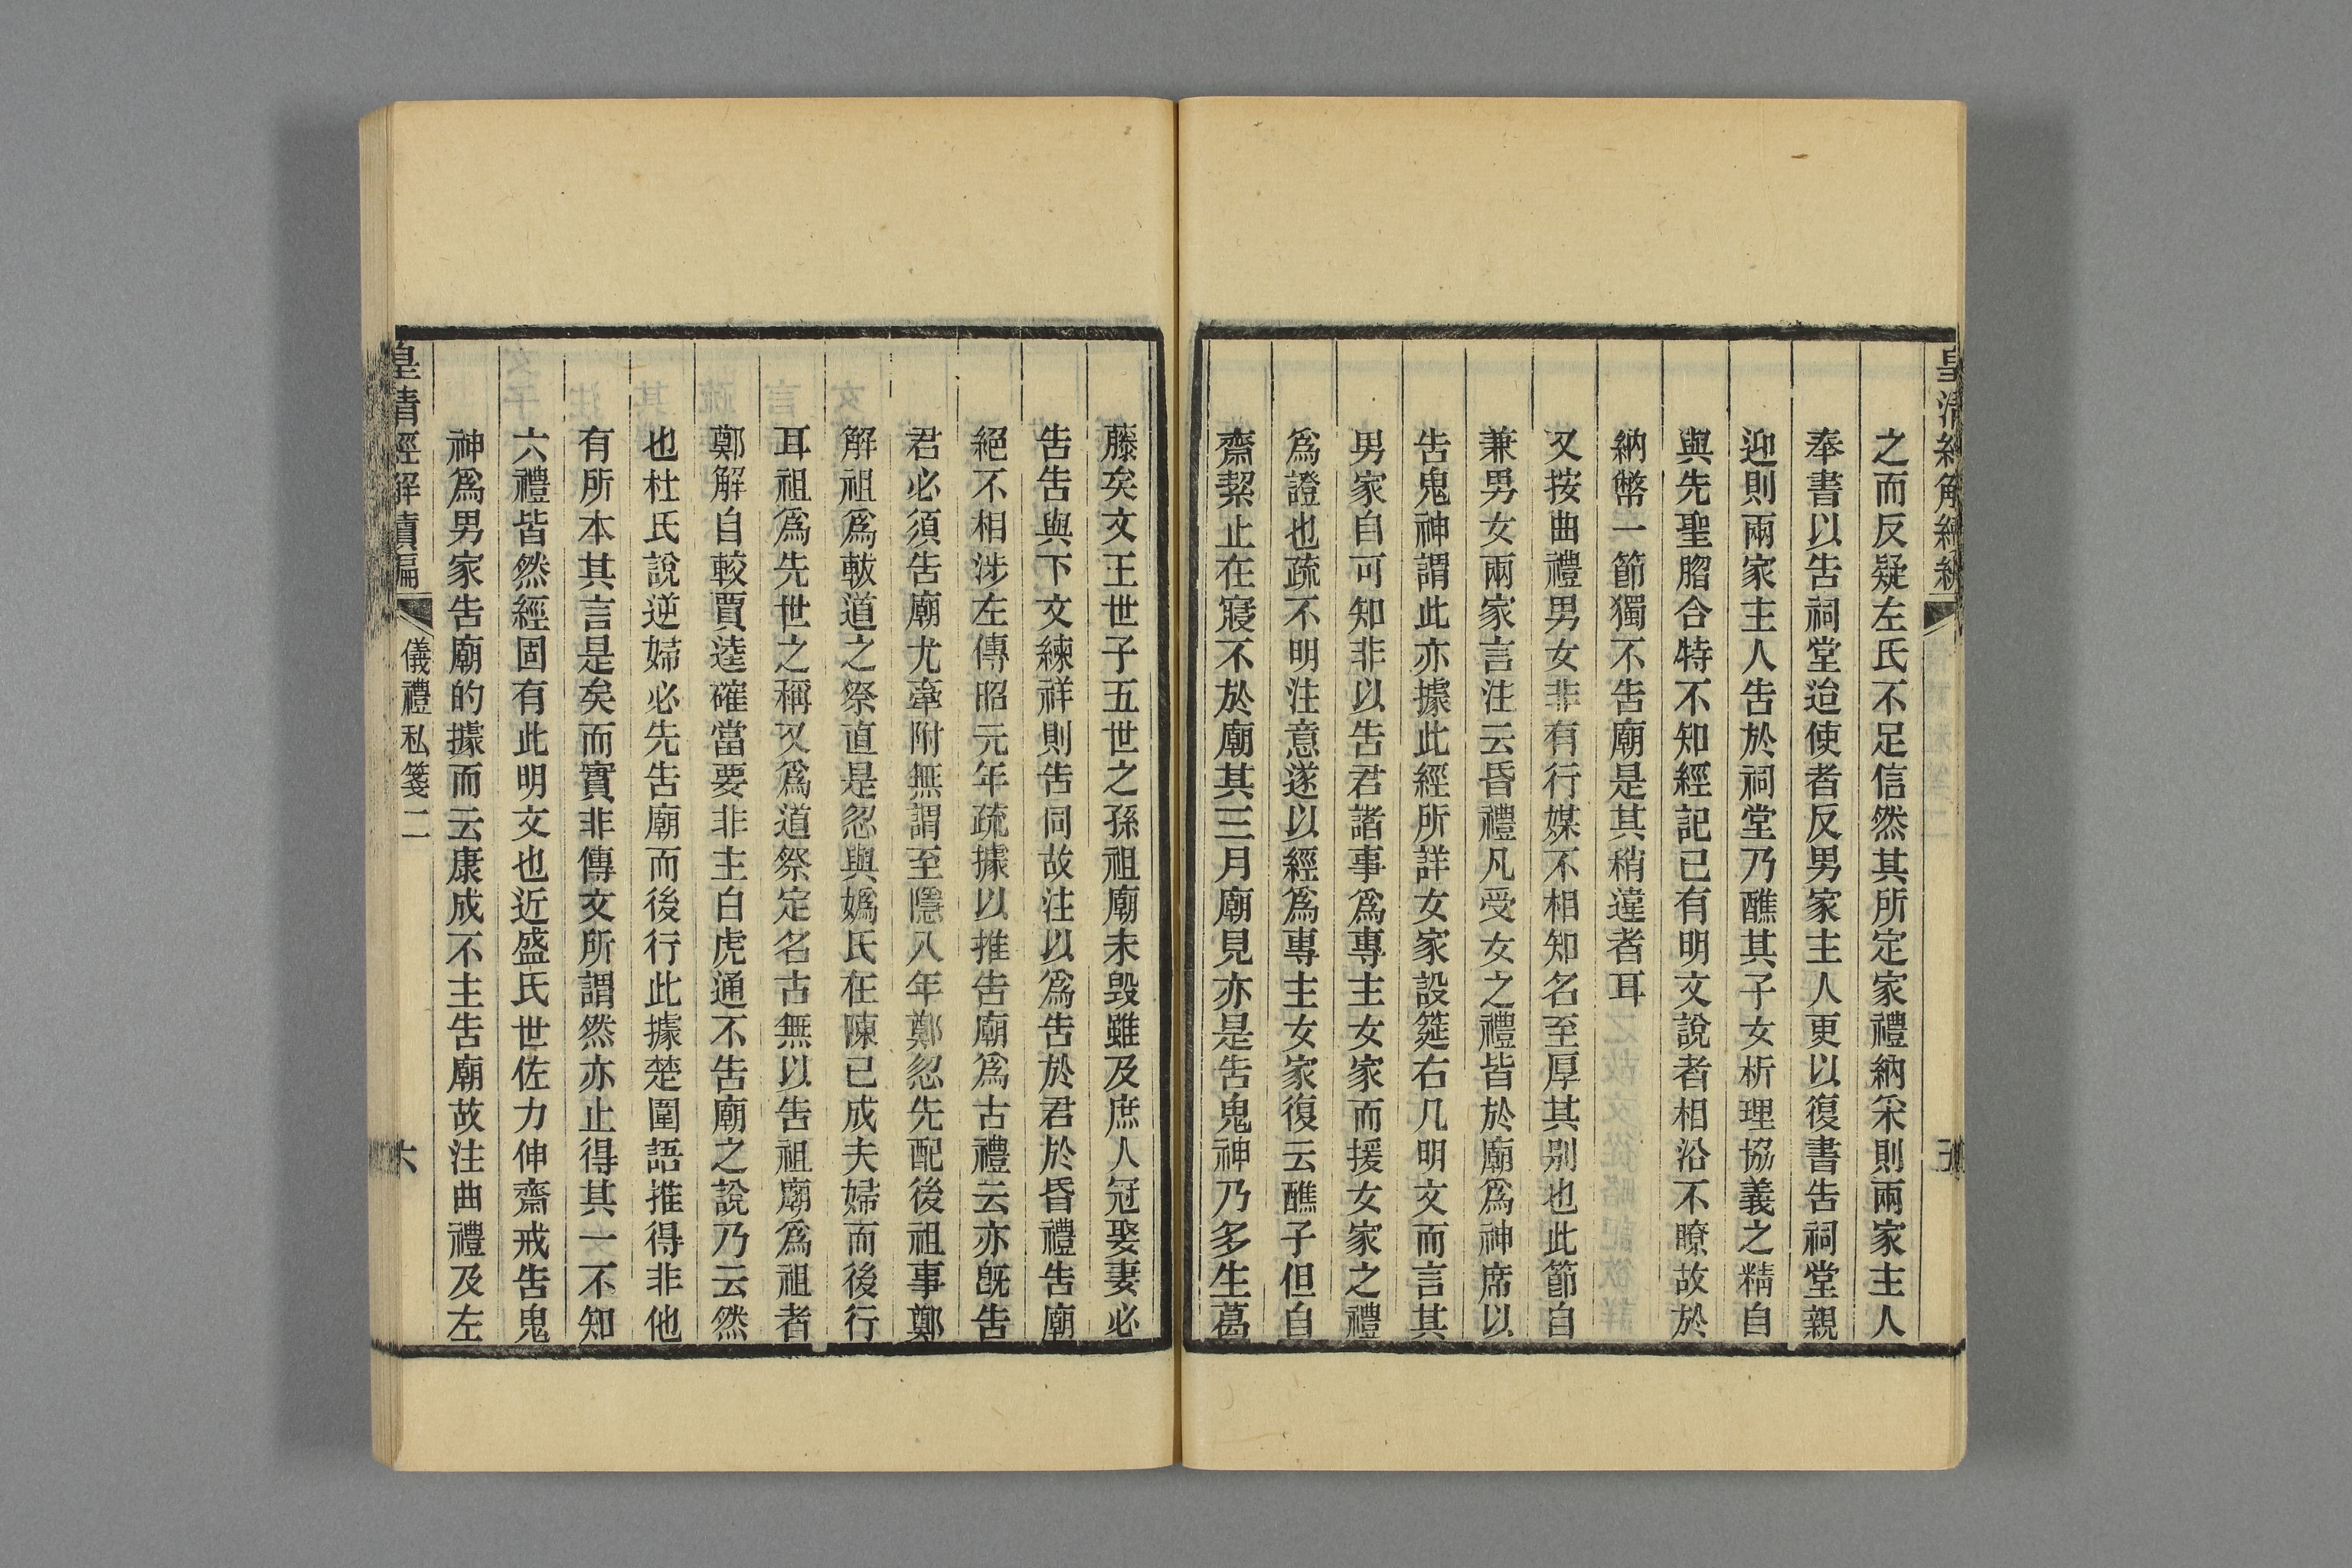 之而反疑左氏不足信然其所定家禮納采則兩家主人
奉書以告祠堂迨使者反男家主人更以復書告祠堂親
迎則兩家主人告於祠堂乃醮其子女析理協義之精自
與先聖脗合特不知經記已有明文說者相沿不瞭故於
納幣一節獨不告廟是其稍違者耳
又按曲禮男女非有行媒不相知名至厚其別也此節自
兼男女兩家言注云昏禮凡受女之禮皆於廟爲神席以
告鬼神謂此亦據此經所詳女家設筵右几明文而言其
男家自可知非以告君諸事爲專主女家而援女家之禮
爲證也疏不明注意遂以經爲專主女家復云醮子但自
齋絜止在寢不於廟其三月廟見亦是告鬼神乃多生葛
藤矣文王世子五世之孫祖廟未毀雖及庶人冠娶妻必
告告與下文練祥則告同故注以爲告於君於昏禮告廟
絕不相涉左傳昭元年疏據以推告廟爲古禮云亦旣告
君必須告廟尤牽附無謂至隱八年鄭忽先配後祖事鄭
解祖爲軷道之祭直是忽與嬀氏在陳已成夫婦而後行
耳祖爲先世之稱又爲道祭定名古無以告祖廟爲祖者
鄭解自較賈逵確當要非主白虎通不告廟之說乃云然
也杜氏說逆婦必先告廟而後行此據楚圍語推得非他
有所本其言是矣而實非傳文所謂然亦止得其一不知
六禮皆然經固有此明文也近盛氏世佐力伸齋戒告鬼
神爲男家告廟的據而云康成不主告廟故注曲禮及左
皇清經解續編
儀禮私箋二
六